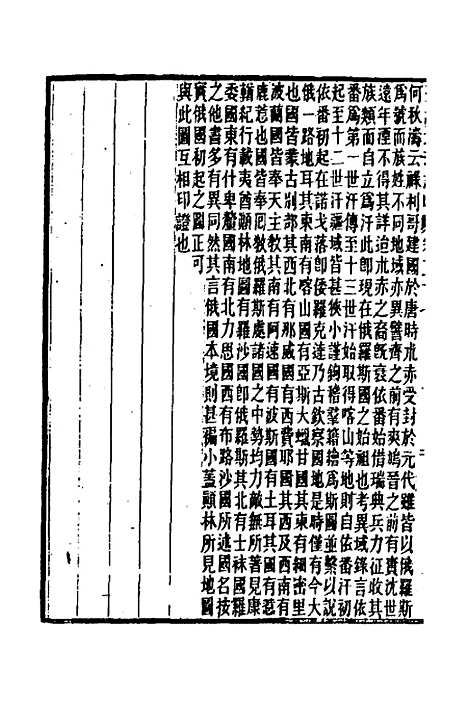 何秋濤云祿利哥建國於唐時朮赤受封於元代雖皆以俄羅斯
爲號而族姓不同地域亦異譬齊之前有爽鳩晉之前有實沈世
遠年湮不得其詳治朮赤之裔旣衰依番始借瑞典兵力征收其
族類而自立爲汗此卽現在俄羅斯之始祖也考異域錄言依
番爲第一世汗傳至十三世汗始取得喀山等地則自依番汗初
起至十二世汗疆域皆甚狹小謹鉤稽羣籍繪爲斯圖並繫以說
依番初起在諾戈落卽倭羅克達乃古欽察國地是時僅有今大
俄一路地耳其東南有喀山國有亞斯大蠟甘國其東有細密里
也國皆蒙古別部其西北有那威國有西費耶國其西及西南有
波蘭國皆奉天主教其南有阿速國有波斯國有土耳其國有惹
鹿惹也國皆奉厄敎俄羅斯處諸國之中勢均力敵無所著見康
輶紀行載夷酋顚林地圖有羅沙國卽俄羅斯其北有士袜國羅
委國東有什卑釐國南有北力思國西有布路沙國所述國名按
之他書多有異同然其言俄國本境則甚褊小蓋顚林所見地圖
實俄國初起之圖正可
與此圖互相印證也